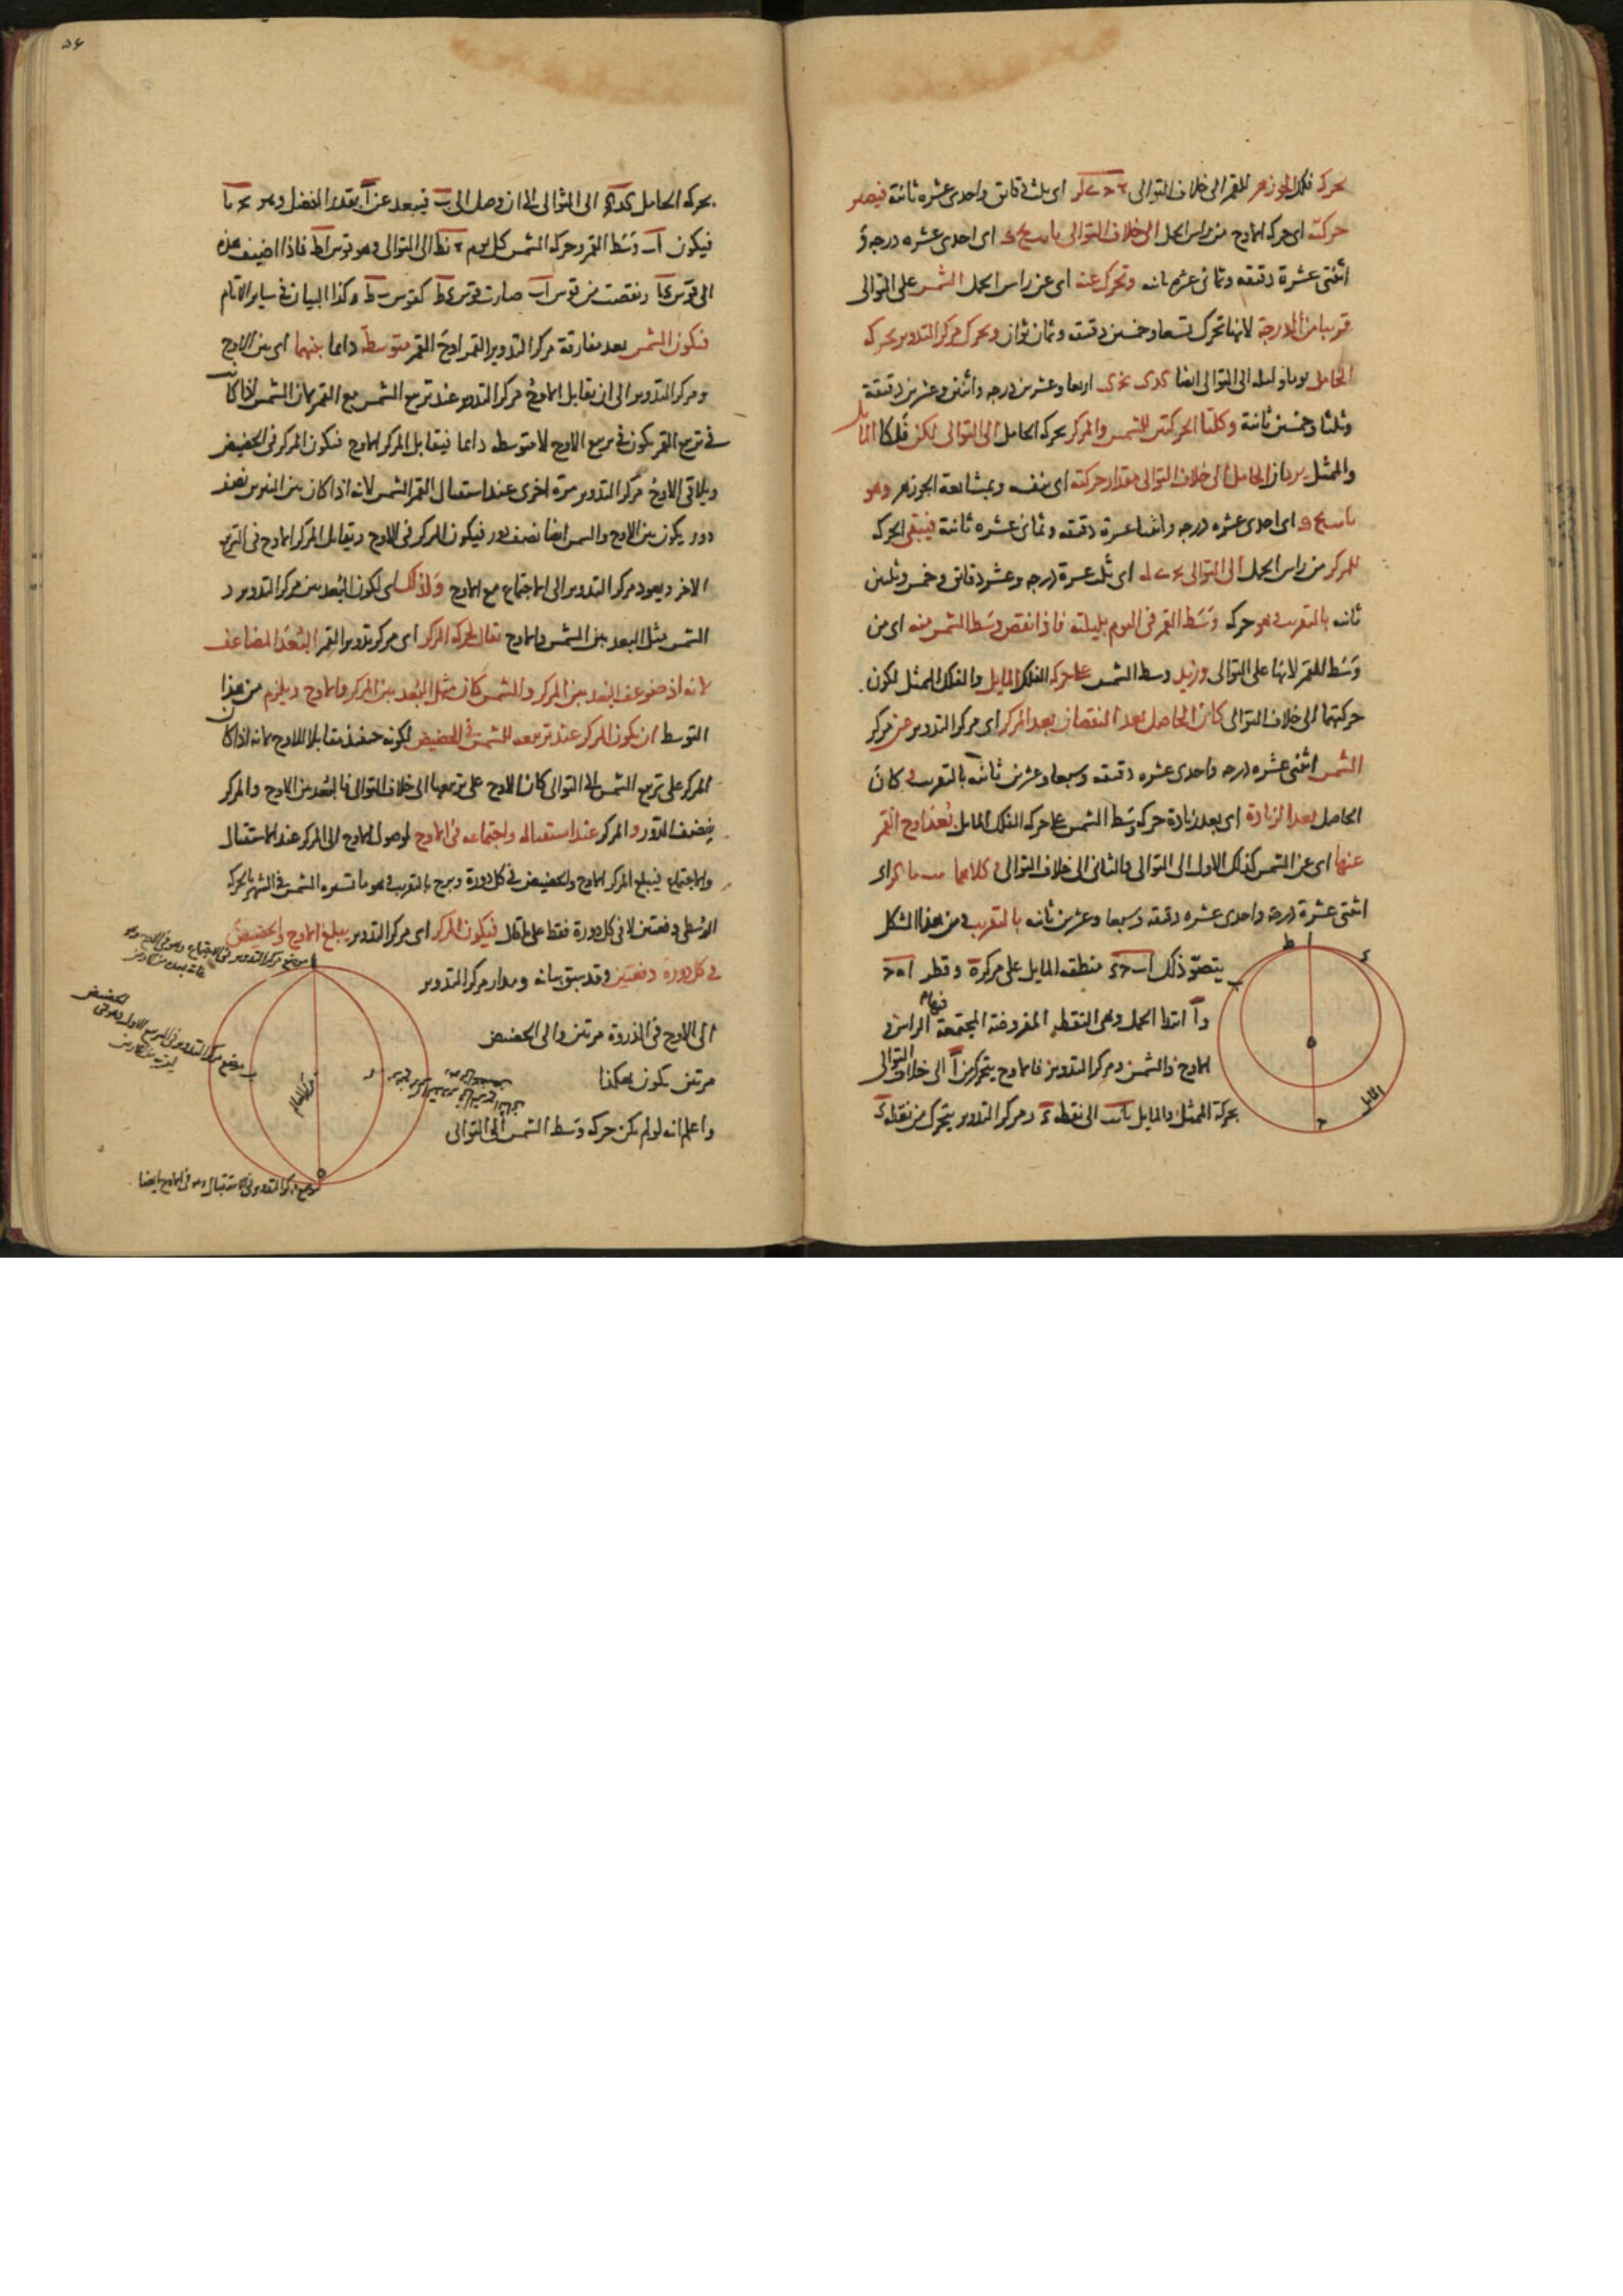 حركة فلك الجوزهر للقمر الى خلاف التوالى اى ثلث دقائق واحدى عشره ثانية فيصير
حركته اى حركه الاوج من راس الحمل الى خلاف التوالى يا يب يح اى احدى عشره درجه و
اثنتى عشرة دقيقه وثمانى عشره ثانيه وتحرك عنه اى عن راس الحمل الشمس على التوالى
قريبا من الدرجة لانها تحرك تسعا وخمسين دقيقه وثمان ثوان وتحرك مركز التدوير بحركه
الحامل يوما وليله الى التوالى ايضا كد كب نج اربعا وعشرين درجه واثنتين وعشرين دقيقة
وثلثا وخمسين ثانية وكلتا الحركتين للشمس والمركز بحركه الحامل الى التوالى لكن فلكا المايل
والممثل يردان الحامل الى خلاف التوالى مقدار حركته اى بنفسه وبمشايعة الجوزهر وهو
يا يب يح اى احدى عشره درجه واثنتا عشرة دقيقه وثمانى عشره ثانية فيبقى الحركه
للمركز من راس الحمل الى التوالى يج ى له اى ثلث عشرة درجه وعشر دقائق وخمس وثلثين
ثانيه بالتقريب وهو حركه وسط القمر فى اليوم بليلته فاذا نقص وسط الشمس منه اى من
وسط القمر لانها على التوالى وزيد وسط الشمس على حركه الفلك المايل والفلك الممثل لكون
حركتهما الى خلاف التوالى كان الحاصل بعد النقصان بعد المركز اى مركز التدوير عن مركز
الشمس اثنتى عشره درجه واحدى عشره دقيقه وسبعا وعشرين ثانيه بالتقريب وكان
الحاصل بعد الزيادة اى بعد زيادة حركه وسط الشمس على حركه الفلك المايل بعد اوج القمر
عنها اى عن الشمس كذلك الاول الى التوالى والثانى الى خلاف التوالى وكلاهما يب يا كز اى
اثنتى عشرة درجة واحدى عشره دقيقه وسبعا وعشرين ثانيه بالتقريب ومن هذا الشكل
يتصور ذلك ا ب ح د منطقه المايل على مركز ه وقطر ا ه ح
و ا ابتدا الحمل وهى النقطه المفروضة المجتمعة فيها الراس و
الاوج والشمس ومركز التدوير فالاوج يتحرك من ا الى خلاف التوالى
بحركة الممثل والمايل الى نقطه د ومركز التدوير يتحرك من نقطه د
ا
ط
د
ب
ه
ح
المايل
٥٤
بحركه الحامل الى التوالى الى ان وصل الى ب فيبعد عن ا بقدر الفضل وهو
فيكون ا ب وسط القمر وحركه الشمس كل يوم نط الى التوالى وهو قوس ا ط فاذا اضيف هذه
الى قوس د ا ونقصت من قوس ا ب صارت قوس د ط كقوس ب ط وكذا البيان فى ساير الايام
فتكون الشمس بعد مفارقة مركز التدوير القمر اوج القمر متوسطة دايما بينهما اى بين الاوج
ومركز التدوير الى ان يقابل الاوج مركز التدوير عند تربيع الشمس مع القمر فان الشمس اذا كانت
فى تربيع القمر يكون فى تربيع الاوج لا متوسطه دايما فيقابل المركز الاوج فيكون المركز فى الحضيض
ويلاقى الاوج مركز التدوير مرة اخرى عند استقبال القمر الشمس لانه اذا كان بين النيرين نصف
دور يكون بين الاوج والشمس ايضا نصف دور فيكون المركز فى الاوج ويقابل المركز الاوج فى التربيع
الاخر ويعود مركز التدوير الى الاجتماع مع الاوج ولذلك اى لكون البعد بين مركز التدوير و
الشمس مثل البعد بين الشمس والاوج يقال لحركه المركز اى مركز تدوير القمر البعد المضاعف
لانه اذ ضوعف البعد بين المركز والشمس كان مثل البعد بين المركز والاوج ويلزم من هذا
التوسط ان يكون المركز عند تربيعه للشمس فى الحضيض لكونه حينئذ مقابلا للاوج لانه اذا كان
المركز على تربيع الشمس الى التوالى كان الاوج على تربيعها الى خلاف التوالى فالبعد بين الاوج والمركز
بنصف الدور والمركز عند استقباله واجتماعه فى الاوج لوصول الاوج الى المركز عند الاستقبال
والاجتماع فيبلغ المركز الاوج والحضيض فى كل دورة وبرج بالتقريب وهو ما تسيره الشمس فى الشهر بالحركه
الوسطى دفعتين لا فى كل دورة فقط على ما قال فيكون المركز اى مركز التدوير يبلغ الاوج والحضيض
فى كل دورة دفعتين وقد سبق بيانه ومدار مركز التدوير
الى الاوج فى الذروة مرتين والى الحضيض
مرتين يكون هكذا
واعلم انه لو لم يكن حركه وسط الشمس الى التوالى
موضع مركز التدوير فى الاجتماع وهو فى الاوج
موضع مركز التدوير فى التربيع الاول وهو فى الحضيض
مركز العالم
موضع مركز التدوير فى الاستقبال وهو فى الاوج ايضا